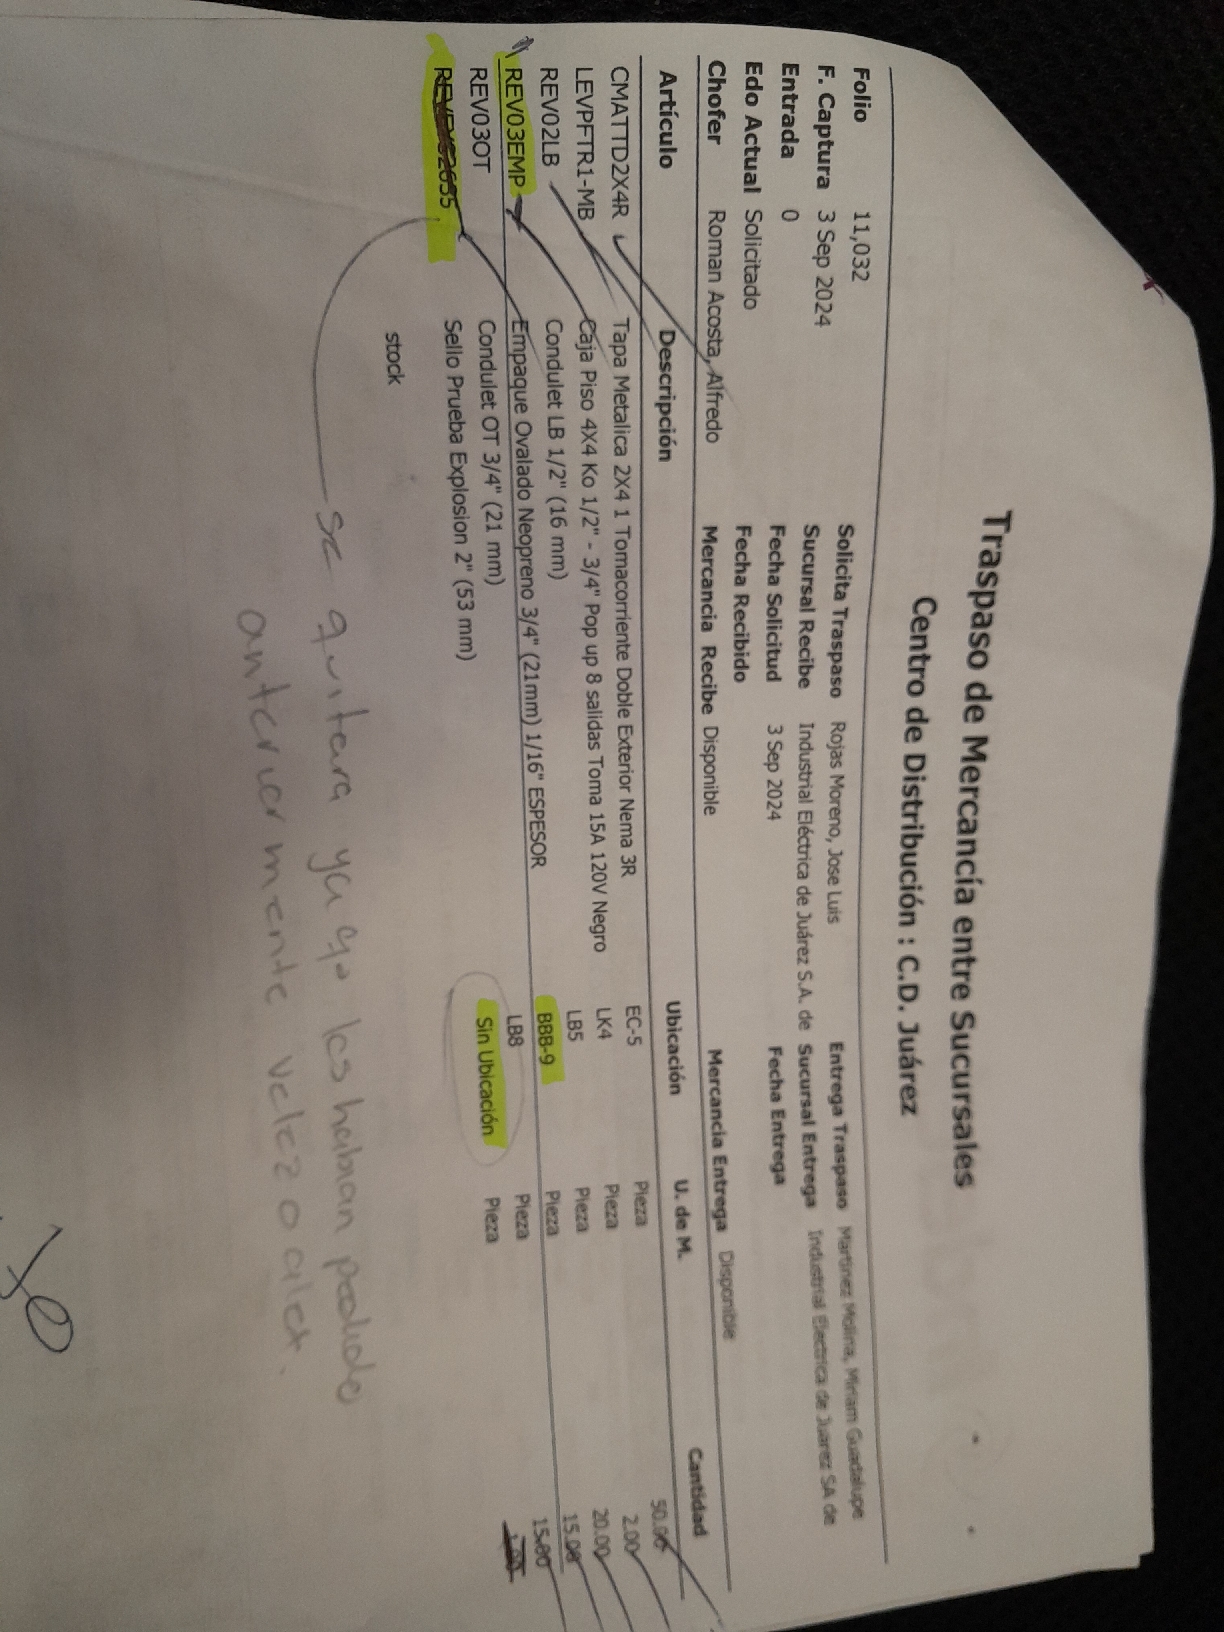 Traspaso de Mercancía entre Sucursales
Centro de Distribución : C.D. Juárez
Folio 11,032 Solicita Traspaso Rojas Moreno, Jose Luis Entrega Traspaso Martinez Molina, Miriam Guadalupe
F. Captura 3 Sep 2024 Sucursal Recibe Industrial Eléctrica de Juárez S.A. de Sucursal Entrega Industrial Electrica de Juarez SA de
Entrada 0 Fecha Solicitud 3 Sep 2024 Fecha Entrega
Edo Actual Solicitado Fecha Recibido
Chofer Roman Acosta, Alfredo Mercancia Recibe Disponible Mercancia Entrega Disponible
Artículo Descripción Ubicación U. de M. Cantidad
CMATTD2X4R Tapa Metalica 2X4 1 Tomacorriente Doble Exterior Nema 3R EC-5 Pieza 50.00
LEVPFTR1-MB Caja Piso 4X4 Ko 1/2" - 3/4" Pop up 8 salidas Toma 15A 120V Negro LK4 Pieza 2.00
REV02LB Condulet LB 1/2" (16 mm) LB5 Pieza 20.00
REV03EMP Empaque Ovalado Neopreno 3/4" (21mm) 1/16" ESPESOR BBB-9 Pieza 15.00
REV03OT Condulet OT 3/4" (21 mm) LB8 Pieza 15.00
Sello Prueba Explosion 2" (53 mm) Sin Ubicación Pieza
stock
se quitara ya qe los habian pedido
anteriormente